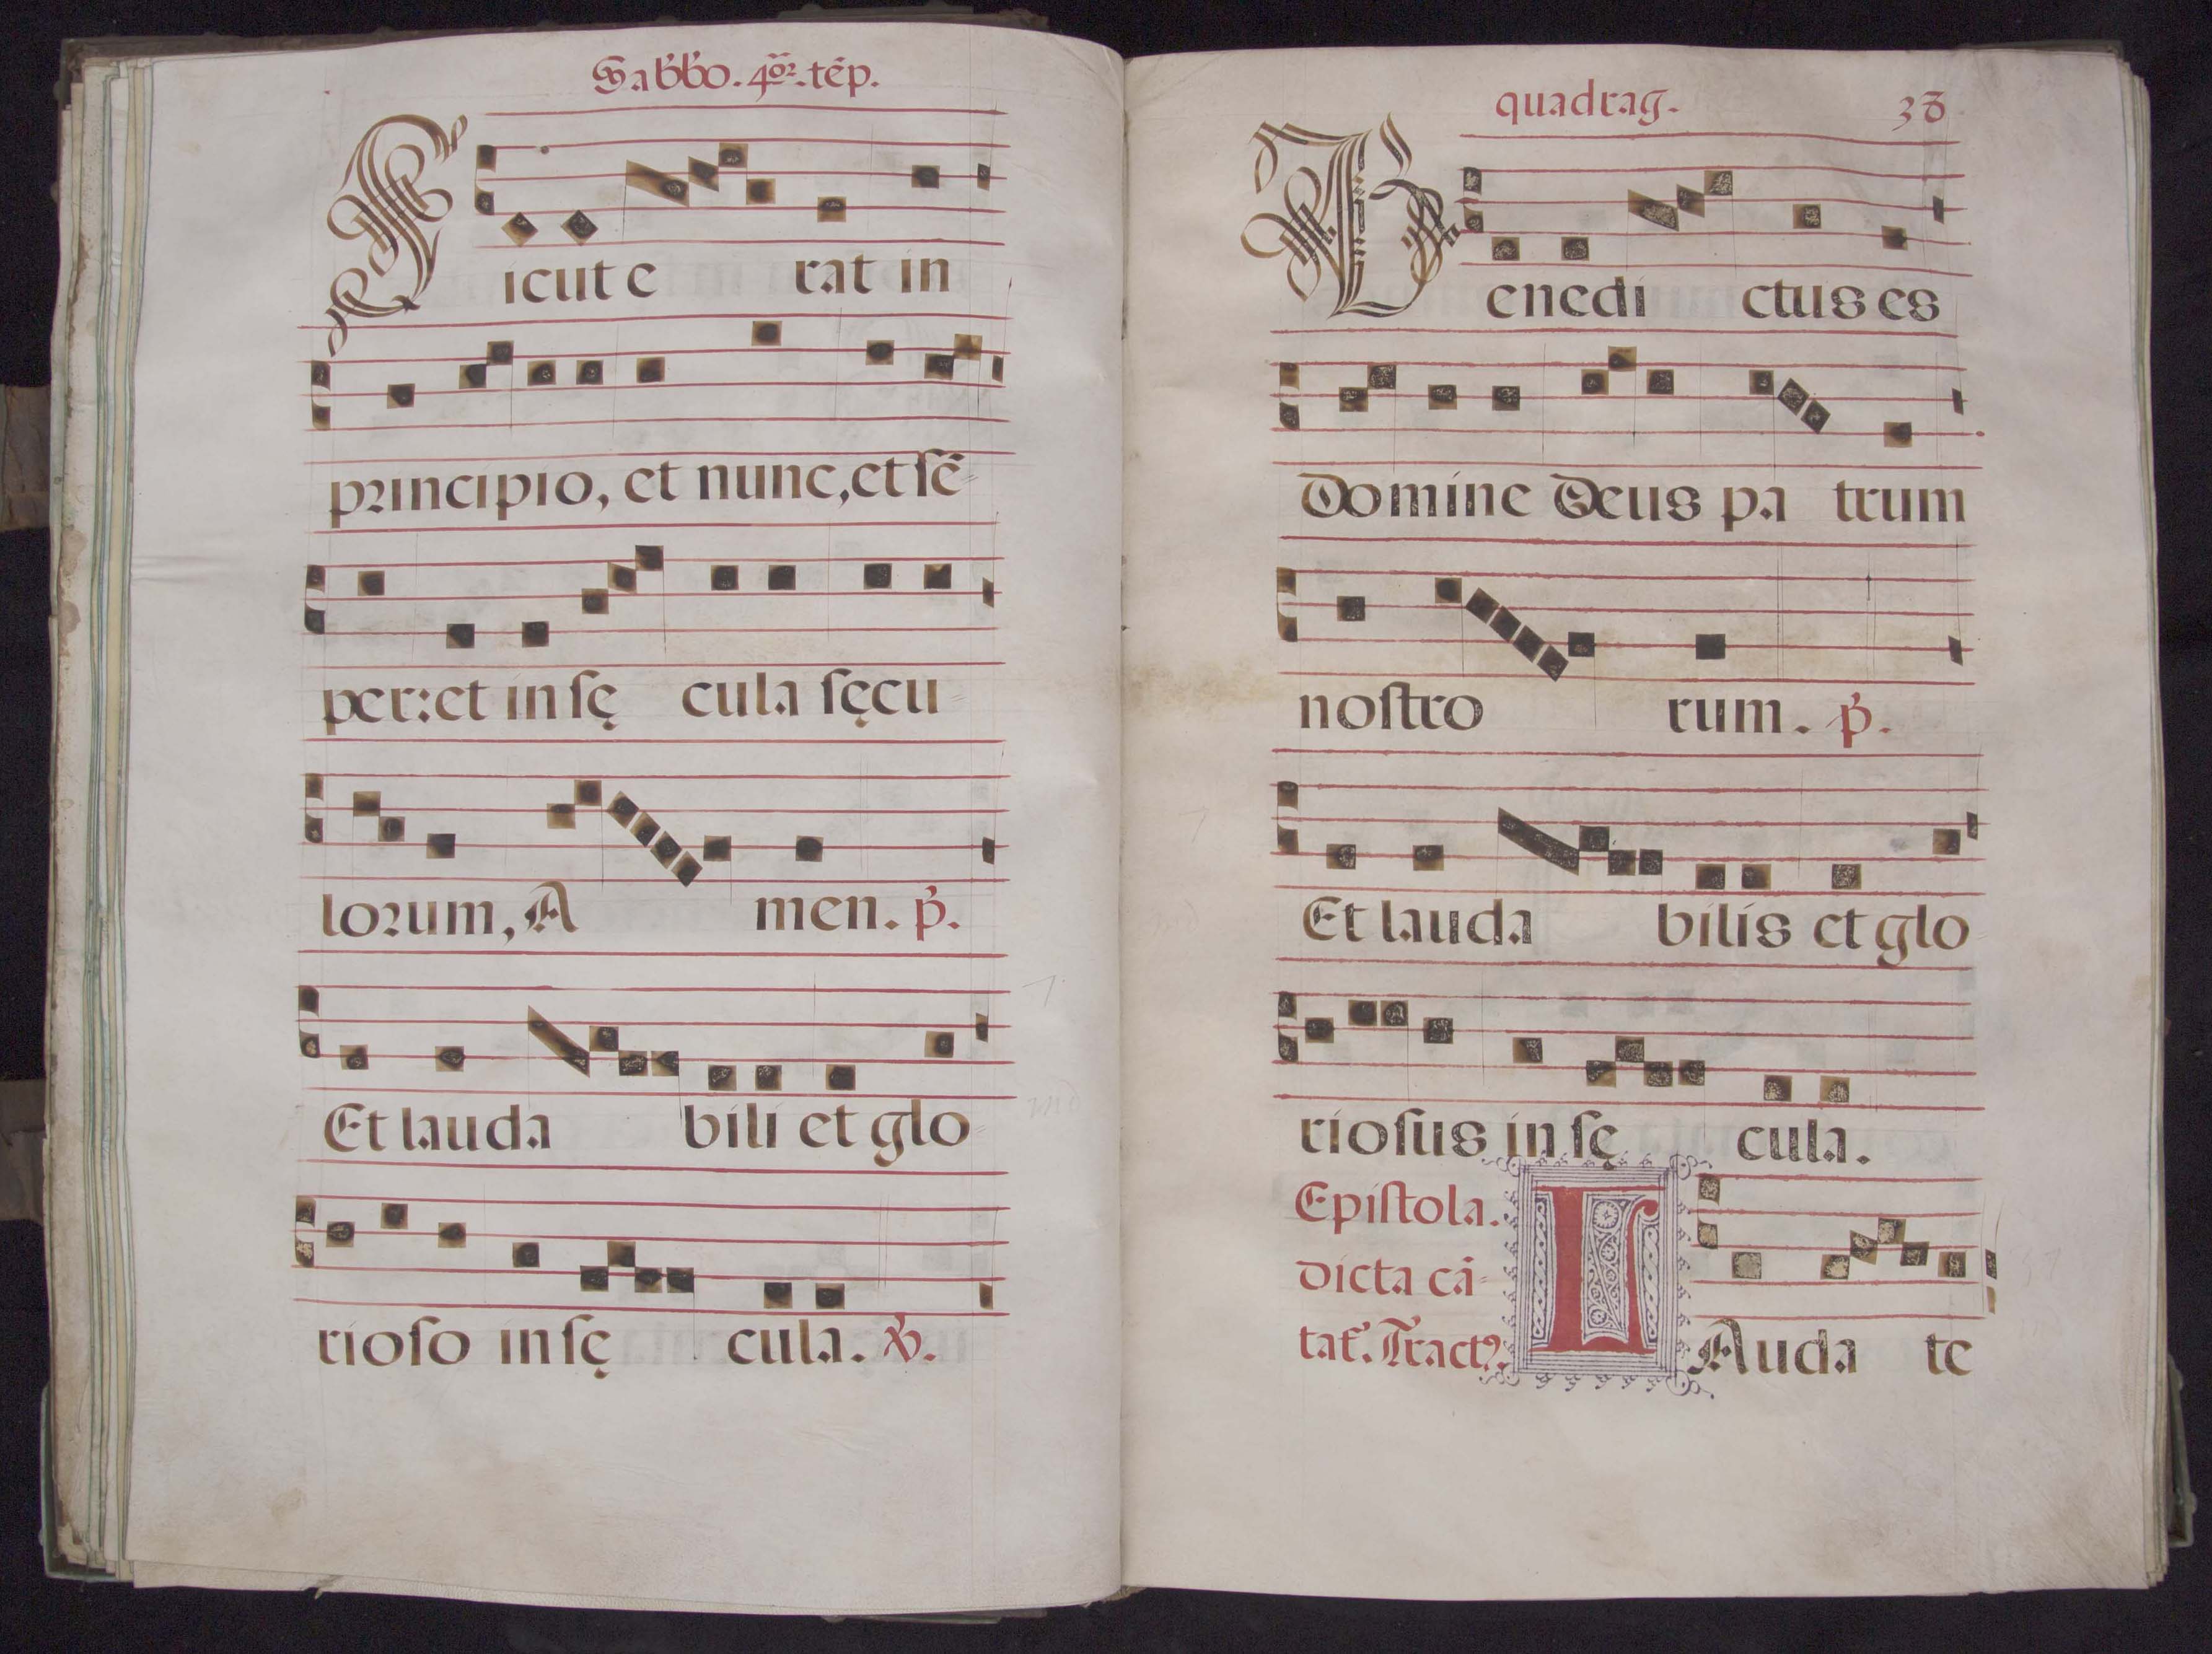 Sabbo. 4or. tẽp.
Sicut e rat in
principio, et nunc, et sẽ-
per: et in sę cula sęcu-
lorum, A men. p̕.
Et lauda bili et glo-
rioso in sę cula. v̕.
quadrag. 38
Benedi ctus es
Domine Deus pa trum
nostro rum. p̕.
Et lauda bilis et glo-
riosus in sę cula.
Epistola.
dicta cã-
tat̕. Tractꝰ.
LAuda te